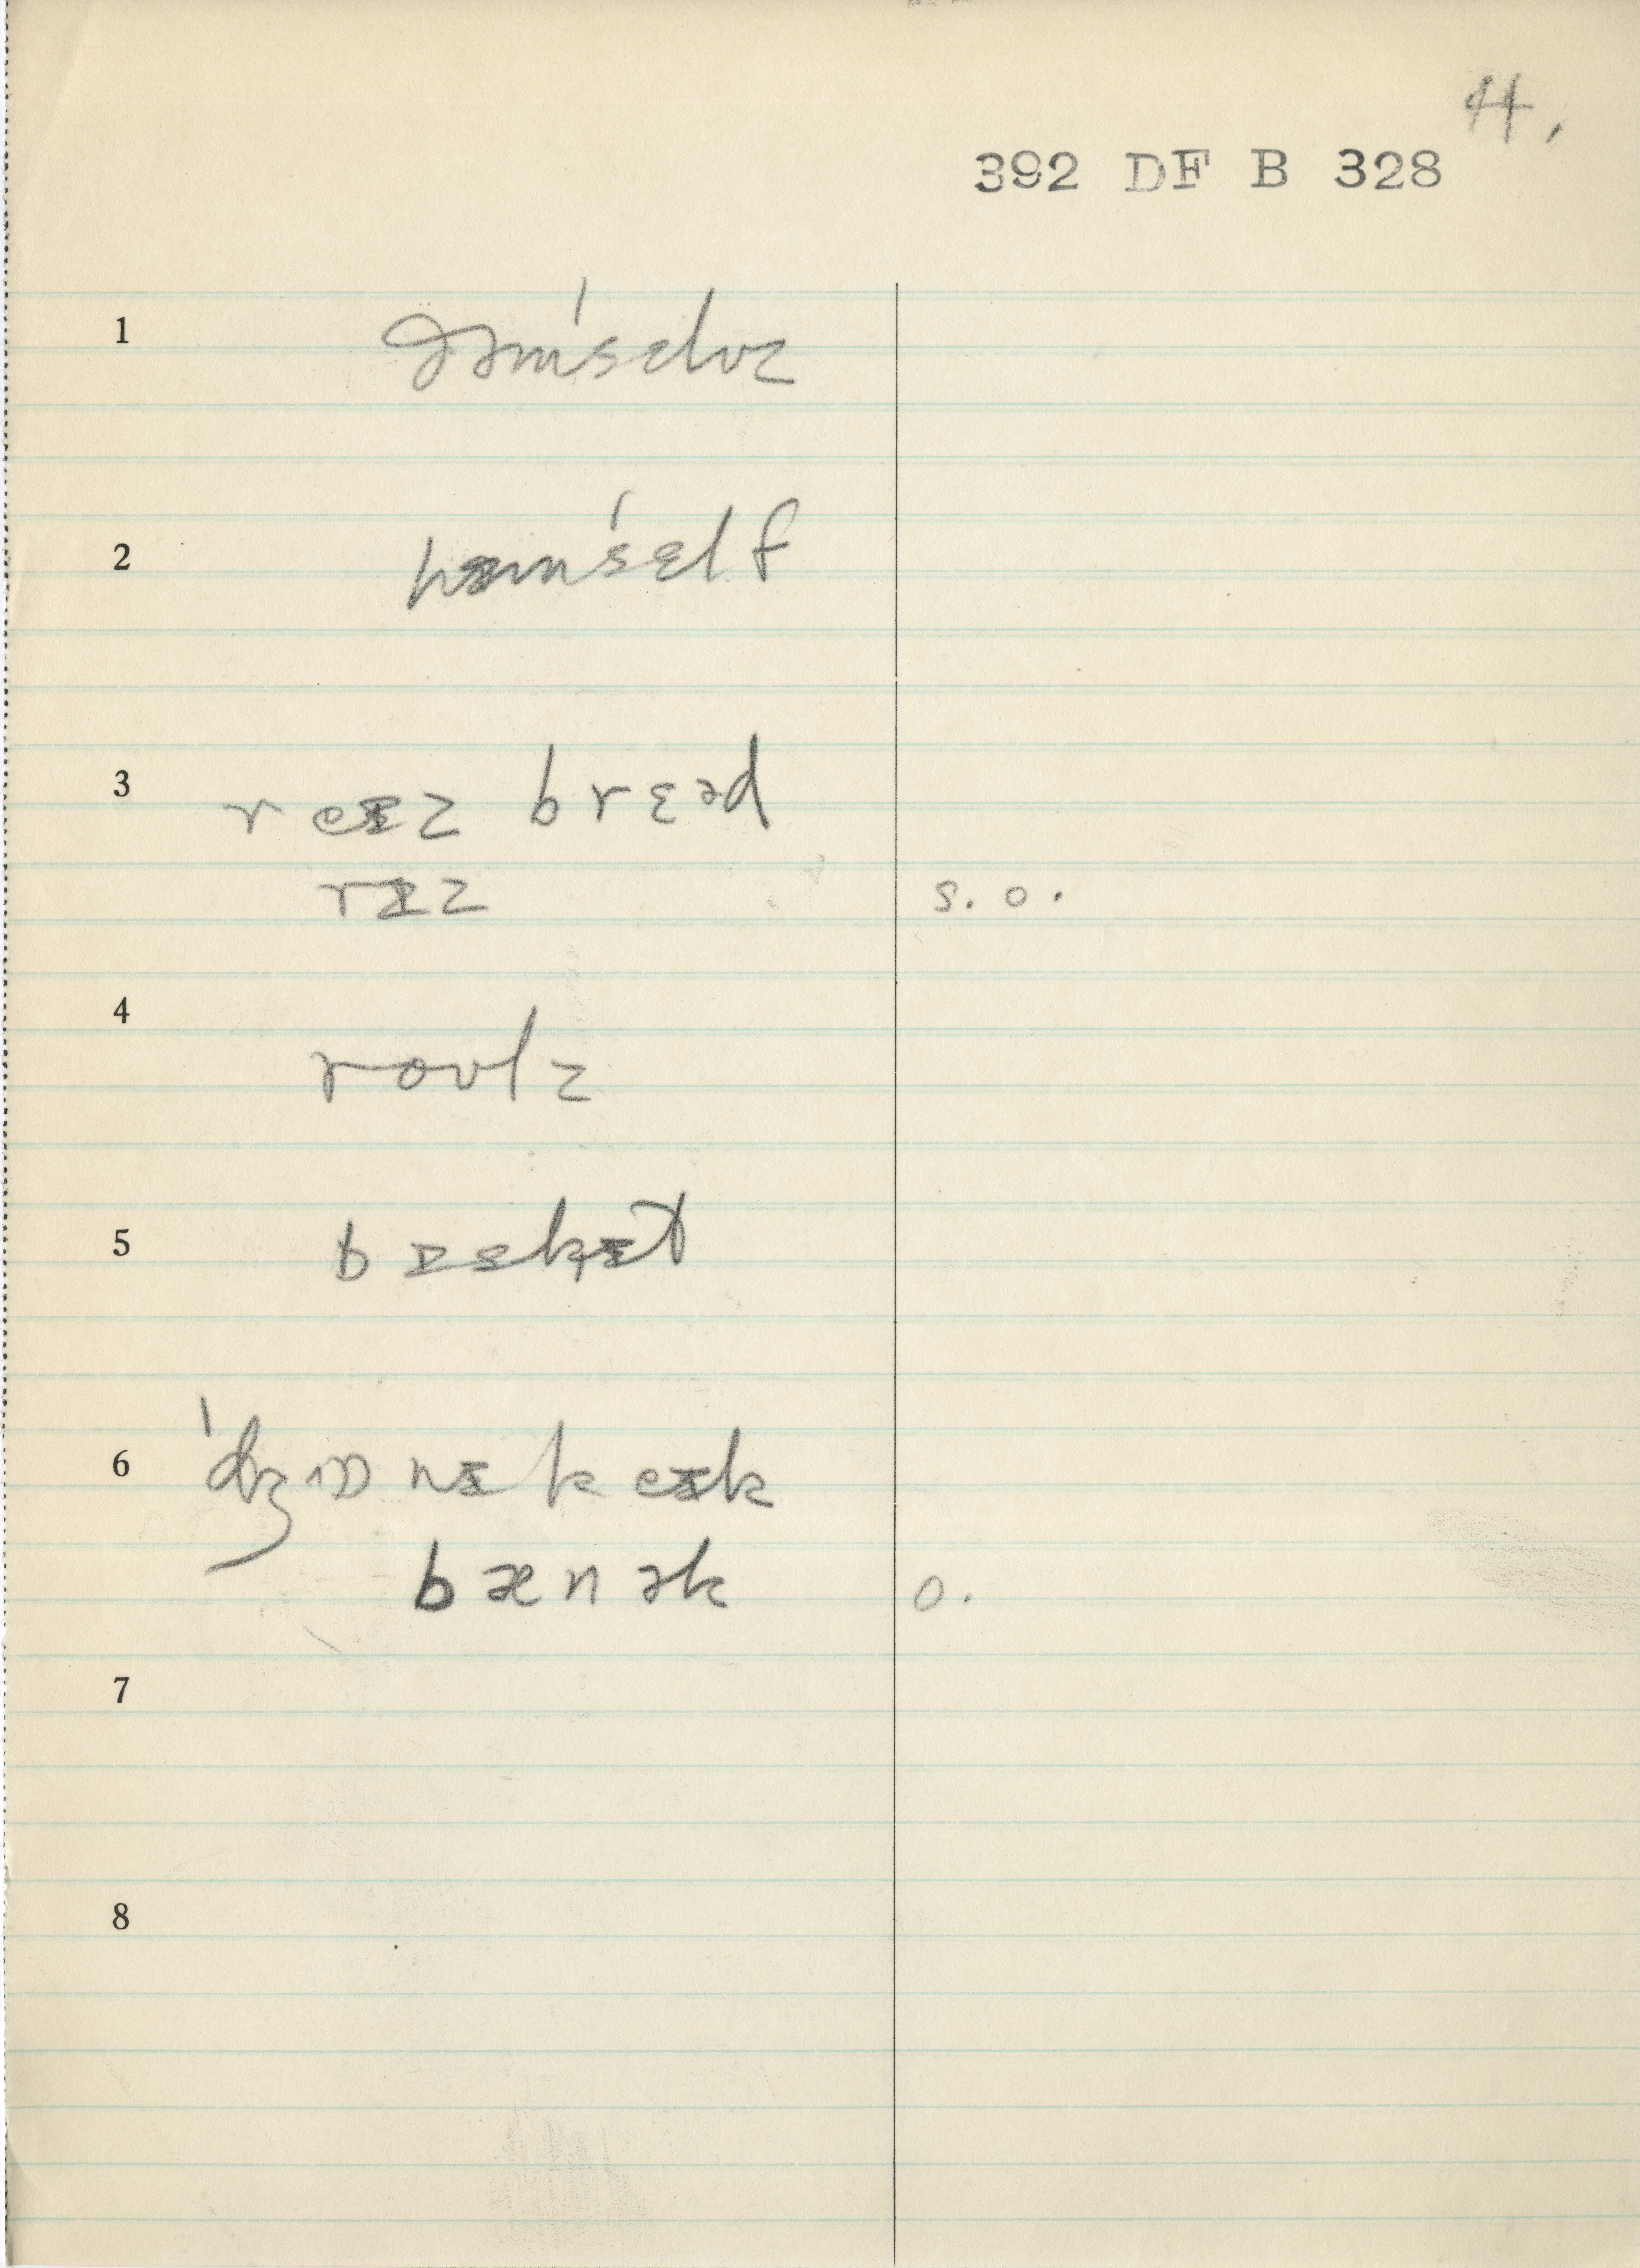 44.
392 DF B 328
1 ðəmˈsɛlvz
2 hɪmˈsɛlf
3 reɪz brɛəd
rɪz s. o.
4 roʊlz
5 bɪsk̟ɪt
6 ˈdʒɒnɪ keɪk
bænək o.
7
8